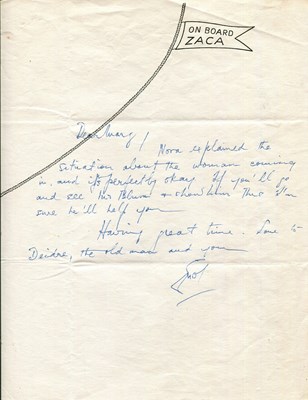 ON BOARD
ZACA
Dear Marg /
Nora explained the
situation about the woman coming
in and it's perfectly okay. If you'll go
and see Mr & show him this I'm
sure he'll help you
Having great time. Love to
Deidre, the old man and you